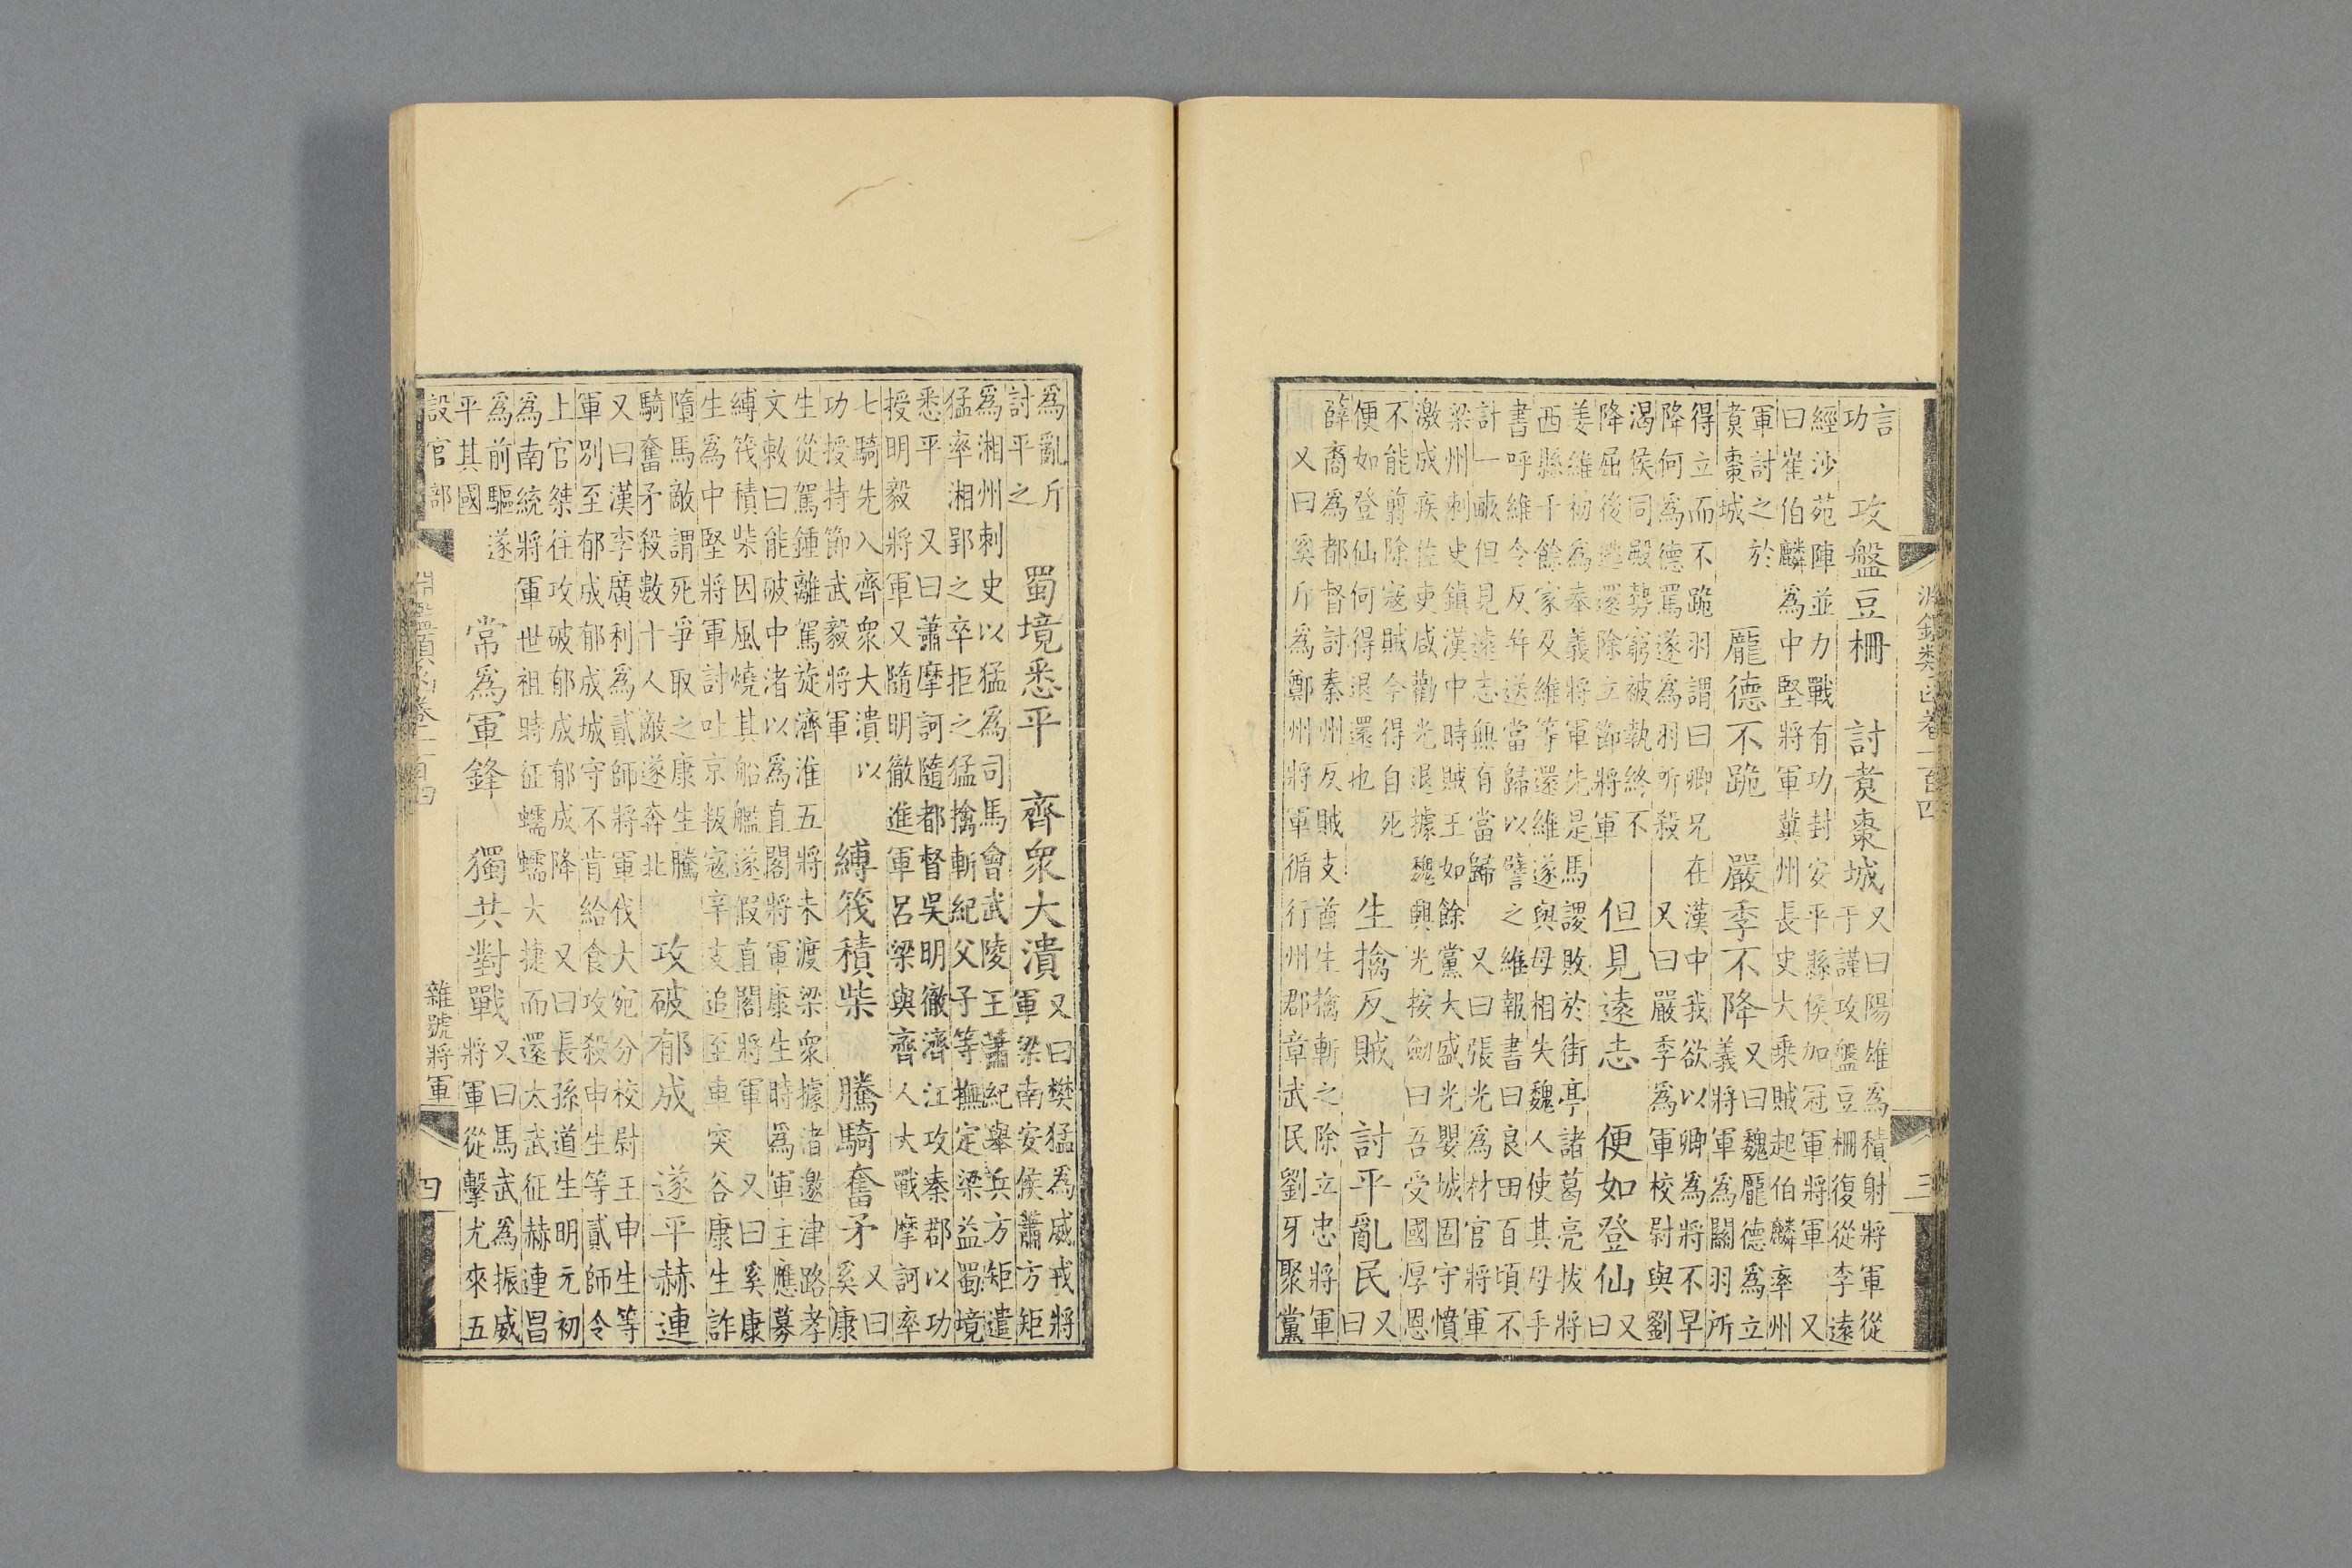 淵鑑類函卷一百四 三
言
功
攻盤豆柵 討賁棗城
又曰陽雄為積射將軍從
于謹攻盤豆柵復從李遠
經沙苑陣並力戰有功封安平縣侯加冠軍將軍 又
曰崔伯麟為中堅將軍冀州長史大乘賊起伯麟率州
軍討之於
賁棗城
龐德不跪 嚴季不降
又曰魏龐德為立
義將軍為關羽所
得立而不跪羽謂曰卿兄在漢中我欲以卿為將不早
降何為德罵遂為羽所殺 又曰嚴季為軍校尉與劉
渴侯同殿勢窮被執終不
降屈後逃還除立節將軍
但見遠志 便如登仙
又
曰
姜維初為奉義將軍先是馬謖敗於街亭諸葛亮拔將
西縣千餘家及維等還維遂與母相失魏人使其母手
書呼維令反并送當歸以譬之維報書曰良田百頃不
計一畝但見遠志無有當歸 又曰張光為材官將軍
梁州刺史鎮漢中時賊王如餘黨大盛光嬰城固守憤
激成疾佐吏咸勸光退據魏興光按劍曰吾受國厚恩
不能翦除寇賊今得自死
便如登仙何得退還也
生擒反賊 討平亂民
又
曰
薛裔為都督討秦州反賊支酋生擒斬之除立忠將軍
又曰奚斤為鄭州將軍循行州郡章武民劉牙聚黨
為亂斤
討平之
蜀境悉平 齊眾大潰
又曰樊猛為威戎將
軍梁南安侯蕭方矩
為湘州刺史以猛為司馬會武陵王蕭紀舉兵方矩遣
猛率湘郢之卒拒之猛擒斬紀父子等撫定梁益蜀境
悉平 又曰蕭摩訶隨都督吳明徹濟江攻秦郡以功
授明毅將軍又隨明徹進軍呂梁與齊人大戰摩訶率
七騎先入齊眾大潰以
功授持節武毅將軍
縛筏積柴 騰騎奮矛
又曰
奚康
生從駕鍾離駕旋濟淮五將未渡梁眾據渚邀津路孝
文敕曰能破中渚以為直閣將軍康生時為軍主應募
縛筏積柴因風燒其船艦遂假直閣將軍 又曰奚康
生為中堅將軍討吐京叛寇辛支追至車突谷康生詐
墮馬敵謂死爭取之康生騰
騎奮矛殺數十人敵遂奔北
攻破郁成 遂平赫連
又曰漢李廣利為貳師將軍伐大宛分校尉王申生等
軍別至郁成郁成城守不肯給食攻殺申生等貳師令
上官桀往攻破郁成郁成降 又曰長孫道生明元初
為南統將軍世祖時征蠕蠕大捷而還太武征赫連昌
為前驅遂
平其國
常為軍鋒 獨共對戰
又曰馬武為振威
將軍從擊尤來五
設官部 淵鑑類函卷一百四 雜號將軍 四